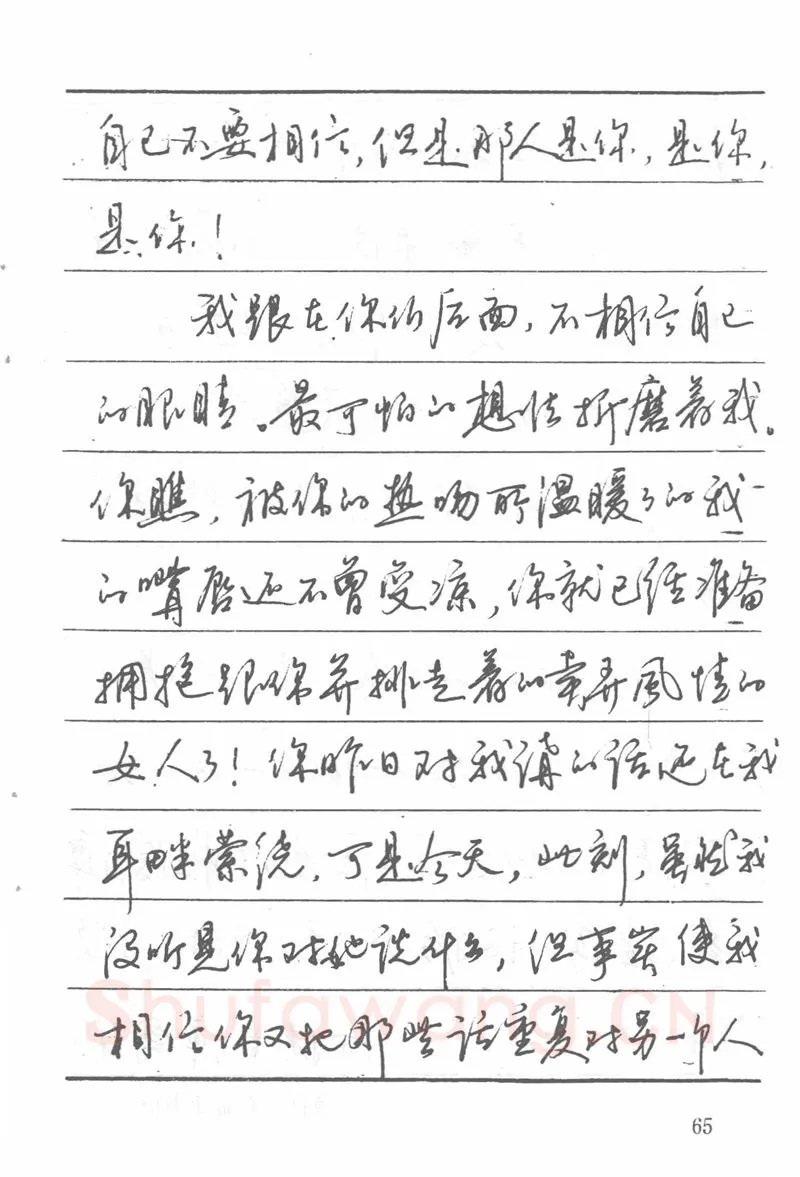 自己不要相信，但是那人是你，是你，
是你！
我跟在你们后面，不相信自己
的眼睛。最可怕的想法折磨着我。
你瞧，被你的热吻所温暖了的我
的嘴唇还不曾变凉，你就已经准备
拥抱跟你并排走着的卖弄风情的
女人了！你昨日对我讲的话还在我
耳畔萦绕，可是今天，此刻，虽然我
没听见你对她说什么，但事实使我
相信你又把那些话重复对另一个人
Shufawang.CN
65